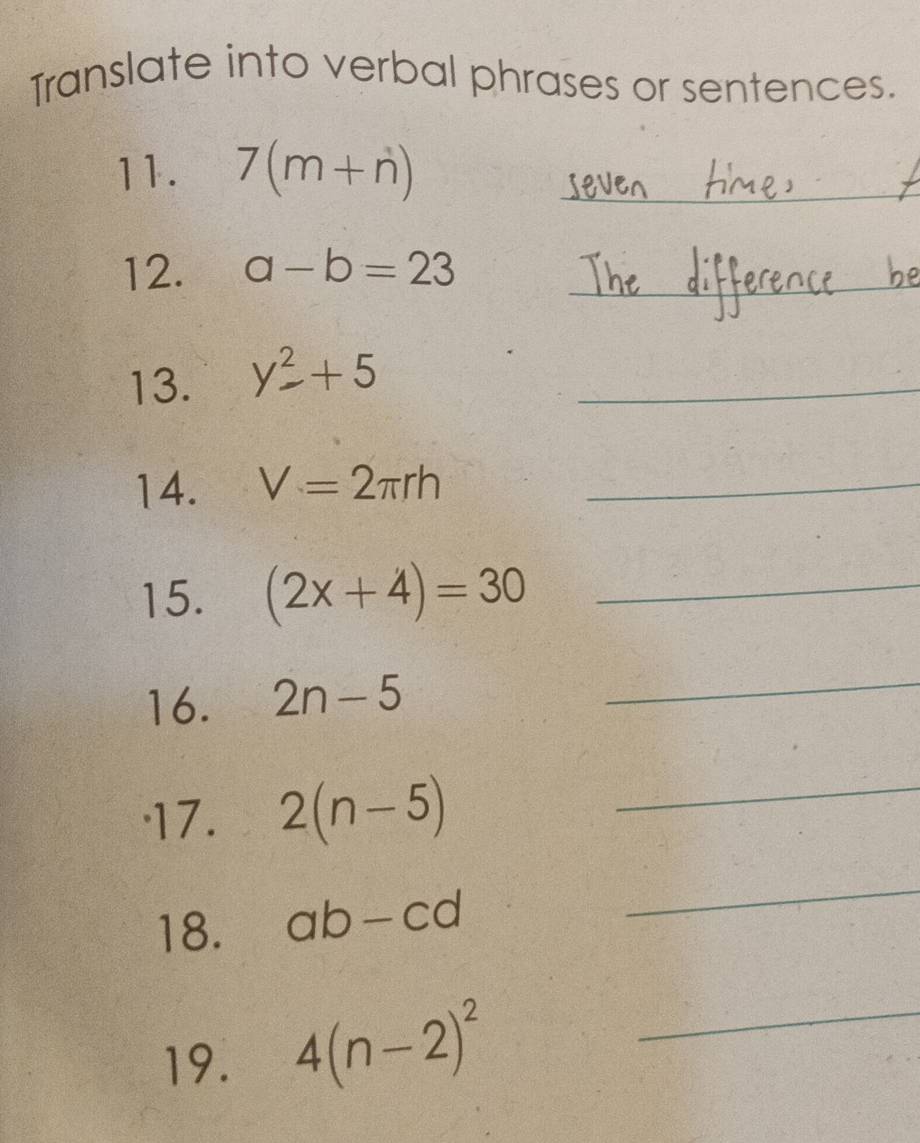 Translate into verbal phrases or sentences.
11. 7(m + n) seven times
12. a - b = 23 The difference be
13. y² + 5
14. V = 2πrh
15. (2x + 4) = 30
16. 2n - 5
17. 2(n - 5)
18. ab - cd
19. 4(n - 2)²